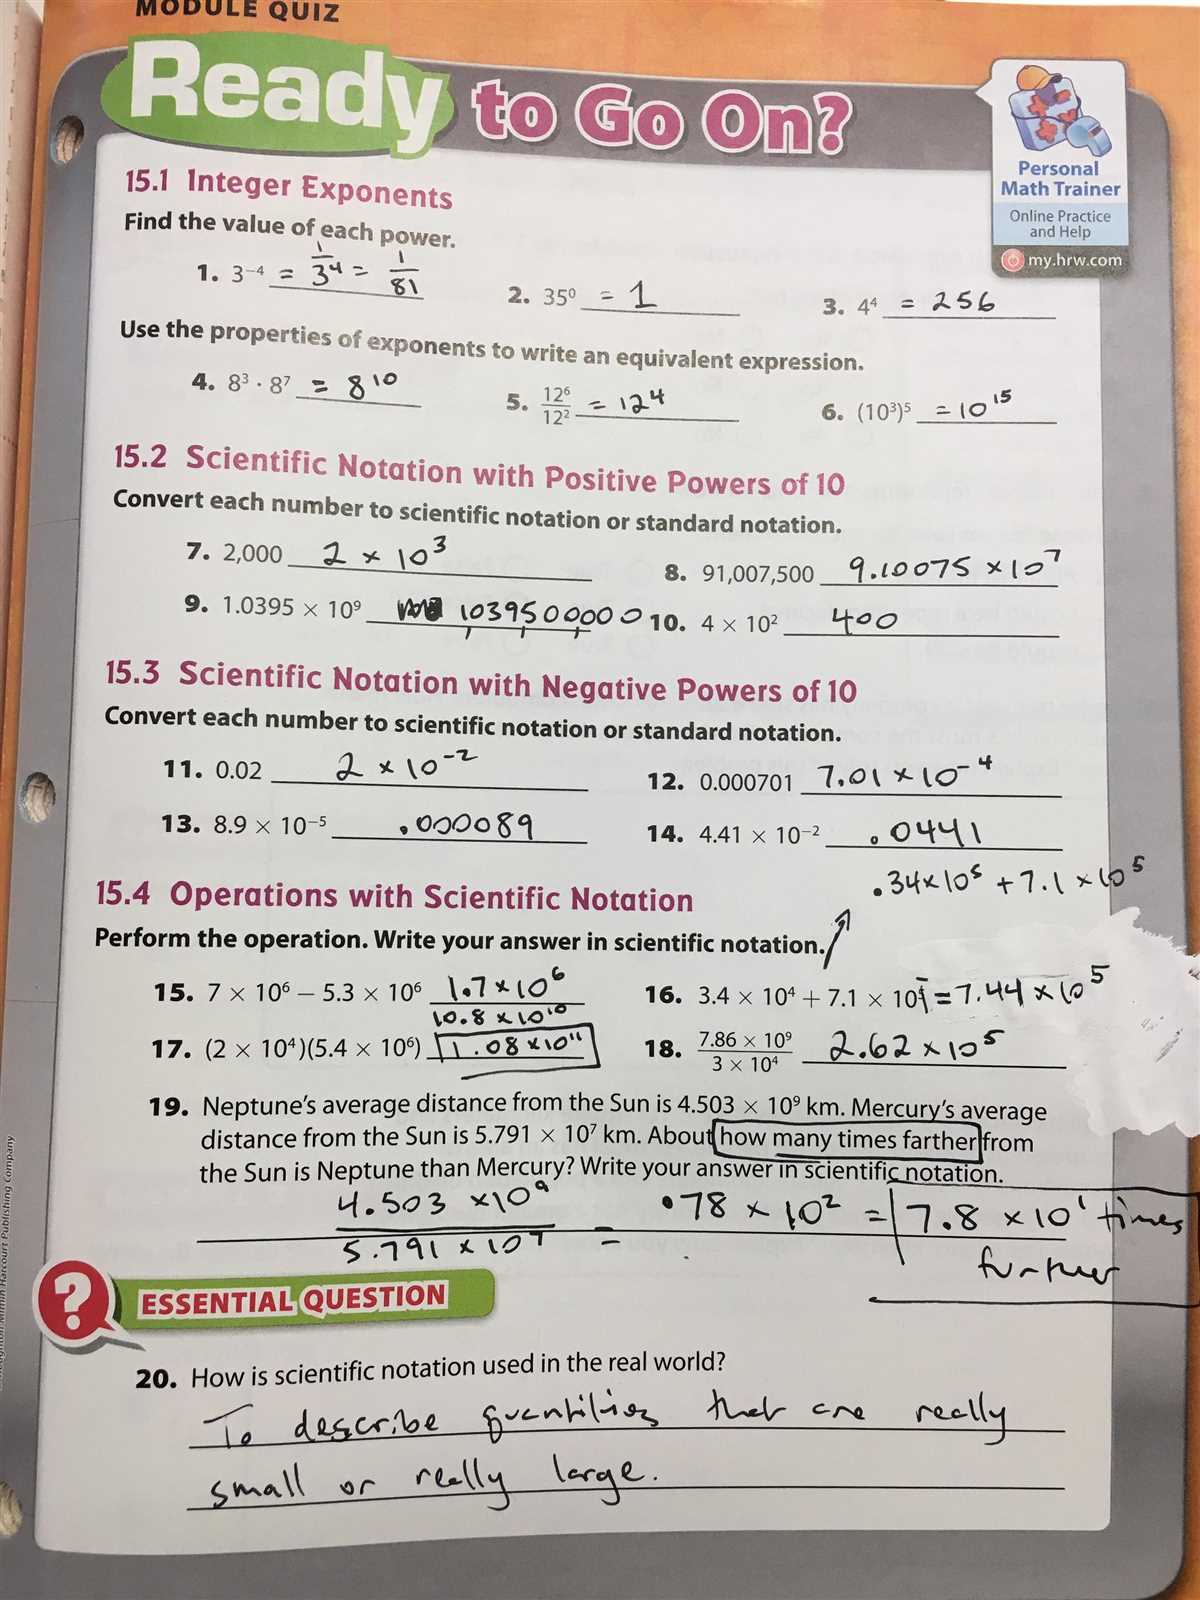 MODULE QUIZ
Ready to Go On?
Personal
Math Trainer
Online Practice
and Help
my.hrw.com
15.1 Integer Exponents
Find the value of each power.
1. 3⁻⁴ = 1/3⁴ = 1/81
2. 35⁰ = 1
3. 4⁴ = 256
Use the properties of exponents to write an equivalent expression.
4. 8³ · 8⁷ = 8¹⁰
5. 12⁶/12² = 12⁴
6. (10³)⁵ = 10¹⁵
15.2 Scientific Notation with Positive Powers of 10
Convert each number to scientific notation or standard notation.
7. 2,000 2 × 10³
8. 91,007,500 9.10075 × 10⁷
9. 1.0395 × 10⁹ 1039500000
10. 4 × 10² 400
15.3 Scientific Notation with Negative Powers of 10
Convert each number to scientific notation or standard notation.
11. 0.02 2 × 10⁻²
12. 0.000701 7.01 × 10⁻⁴
13. 8.9 × 10⁻⁵ .000089
14. 4.41 × 10⁻² .0441
.34×10⁵ + 7.1 × 10⁵
15.4 Operations with Scientific Notation
Perform the operation. Write your answer in scientific notation.
15. 7 × 10⁶ – 5.3 × 10⁶ 1.7 × 10⁶
16. 3.4 × 10⁴ + 7.1 × 10⁵ = 7.44 × 10⁵
10.8 × 10¹⁰
17. (2 × 10⁴)(5.4 × 10⁶) 1.08 × 10¹¹
18. 7.86 × 10⁹/3 × 10⁴ 2.62 × 10⁵
19. Neptune's average distance from the Sun is 4.503 × 10⁹ km. Mercury's average
distance from the Sun is 5.791 × 10⁷ km. About how many times farther from
the Sun is Neptune than Mercury? Write your answer in scientific notation.
4.503 × 10⁹/5.791 × 10⁷ = .78 × 10² = 7.8 × 10¹ times
further
ESSENTIAL QUESTION
20. How is scientific notation used in the real world?
To describe quantities that are really
small or really large.
Harcourt Publishing Company